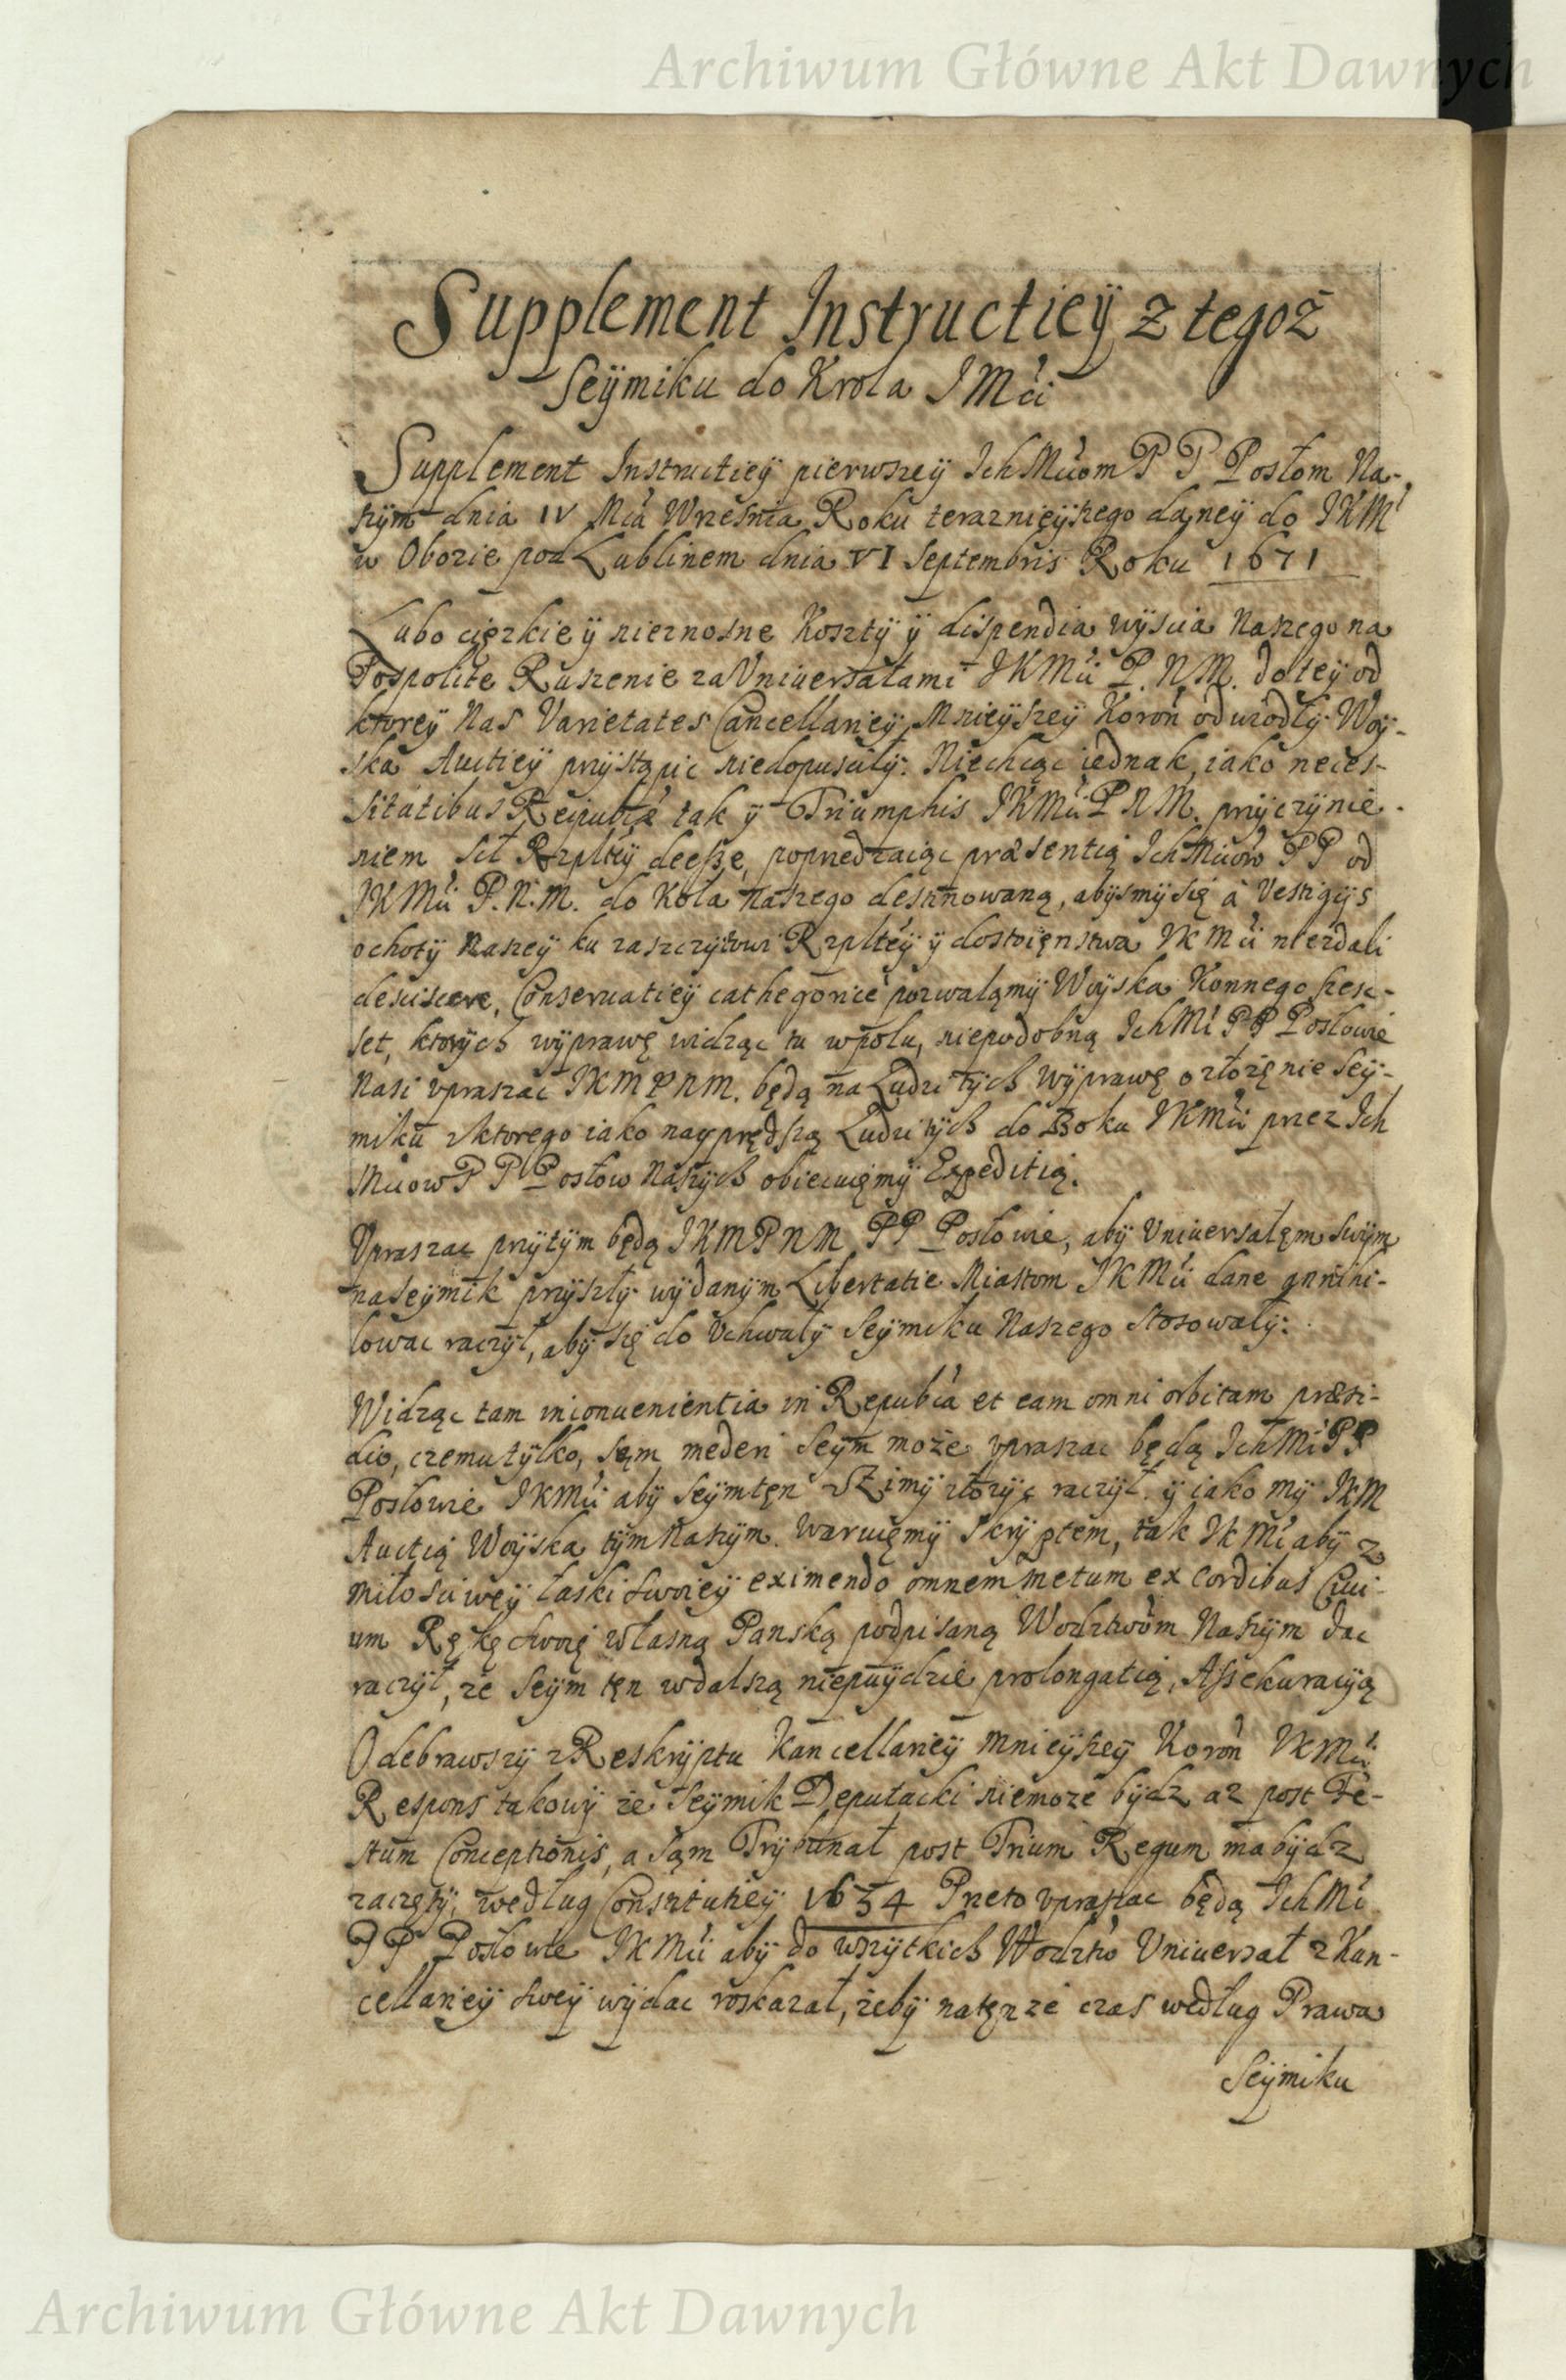 Archiwum Główne Akt Dawnych
Supplement Instructieÿ z tegoż
Seÿmiku do Krola JMći
Supplement Instructieÿ pierwszeÿ IchMćiom P P Posłom Na-
szÿm dnia IV Mćá Wrzesnia Roku teraznieÿszego daneÿ do JKMći
w Obozie pod Lublinem dnia VI Septembris Roku 1671
Lubo cięzkie ÿ nieznosne Kosztÿ ÿ dispendia wÿscia Naszego na
Pospolite Ruszenie za Vniuersałami JKMći P. N M. do teÿ od
ktoreÿ Nas Varietates Cancellarieÿ Mnieÿszeÿ Koroń odwiodłÿ Woÿ-
ska Auctieÿ przÿstąpic niedopusciłÿ. Niechcąc iednak, iako neces-
sitatibus Reipubćæ tak ÿ Triumphis JKMći P N M. przÿczÿnie-
niem sił Rzpltéÿ deesse, poprzedzaiąc præsentią IchMćiow PP od
JKMći P. N. M. do Koła Naszego destinowaną, abÿsmÿ się à Vestigÿs
ochotÿ Naszeÿ ku zaszczÿtowi Rzpltéÿ ÿ dostoięnstwa JKMći niezdali
desciscere, Conseruatieÿ cathegoricè pozwalamÿ Woÿska Konnego szesc-
set, ktorÿch wÿprawę widząc tu wpolu, niepodobną IchMć PP Posłowie
Nasi vpraszac JKM P N M. będą na Ludzi tÿch Wÿprawę o złożęnie Seÿ-
miku zktorego iako naÿprędszą Ludzi tÿch do Boku JKMći przez Ich
Mćiow P P Posłow Naszÿch obiecuięmÿ Expeditią.
Vpraszac przÿtÿm będą JKM P N M PP Posłowie, abÿ Vniuersałęm swÿm
na Seÿmik przÿszłÿ wÿdanÿm Libertatie Miastom JKMći dane annihi-
lowac raczÿł, abÿ się do Vchwałÿ Seÿmiku Naszego stosowałÿ.
Widząc tam inconuenientia in Repubćá et eam omni orbitam præsi-
dio, czemu tÿlko, sąm mederi Seÿm może vpraszac będą IchMć PP
Posłowie JKMći abÿ Seÿm tęn zimÿ złożÿc raczÿł. ÿ iako mÿ JKM
Auctią Woÿska tÿm Naszÿm. waruięmÿ Skrÿptem, tak JKMć abÿ z
miłosciweÿ łaski swoieÿ eximendo omnem metum ex Cordibus Ciui-
um Ręką swoią własną Panską podpisaną Wodztwom Naszÿm dac
raczÿł, ze Seÿm tęn wdalszą niepuÿdzie prolongatią, Assekuracÿą
Odebrawszÿ z Reskrÿptu Kancellarieÿ Mnieÿszeÿ Koroń JKMći
Respons takowÿ że Seÿmik Deputacki niemoze bÿdz az post Fe-
stum Conceptionis, a sąm Trÿbunał post Trium Regum ma bÿdz
zaczętÿ, według Constitutieÿ 1654 Przeto vpraszac będą IchMć
PP Posłowie JKMći abÿ do wszÿtkich Wodztw Vniuersał z Kan-
cellarieÿ sweÿ wÿdac roskazał, żebÿ natęnze czas według Prawa
Seÿmiku
Archiwum Główne Akt Dawnych